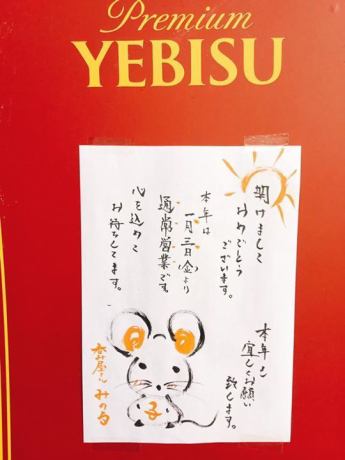 Premium
YEBISU
明けまして
おめでとう
ございます。
本年は
一月三日(金)より
通常営業です。
心を込めて
お待ちしてます。
本年も
宜しくお願い
致します。
子
みの